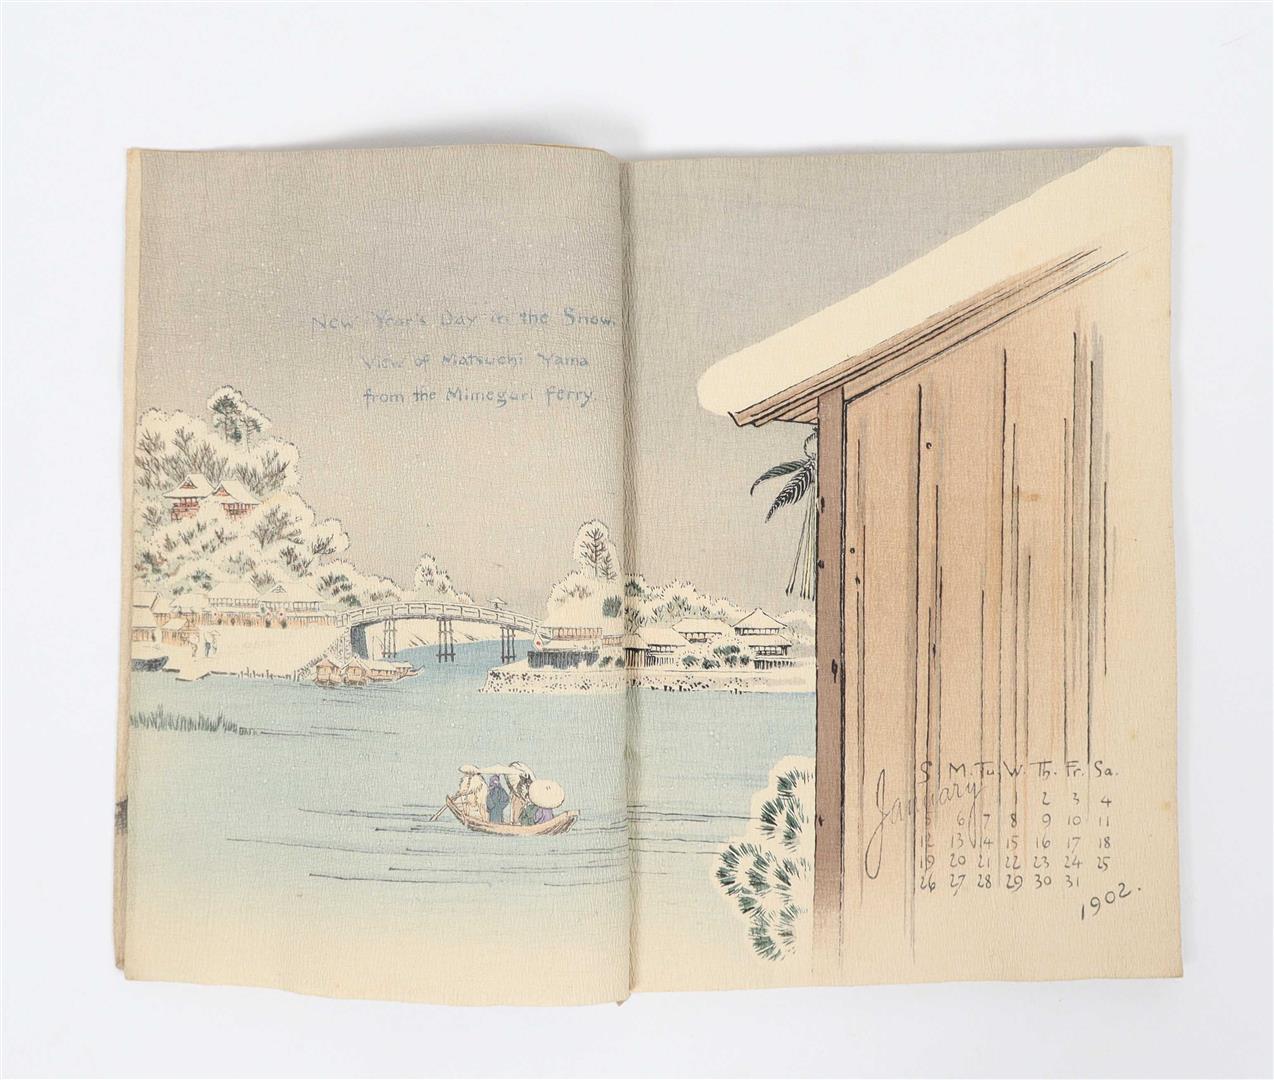 New Year's Day in the Snow.
View of Matsuchi Yama
from the Mimeguri Ferry.
January
S. M. Tu. W. Th. Fr. Sa.
1 2 3 4
5 6 7 8 9 10 11
12 13 14 15 16 17 18
19 20 21 22 23 24 25
26 27 28 29 30 31
1902.